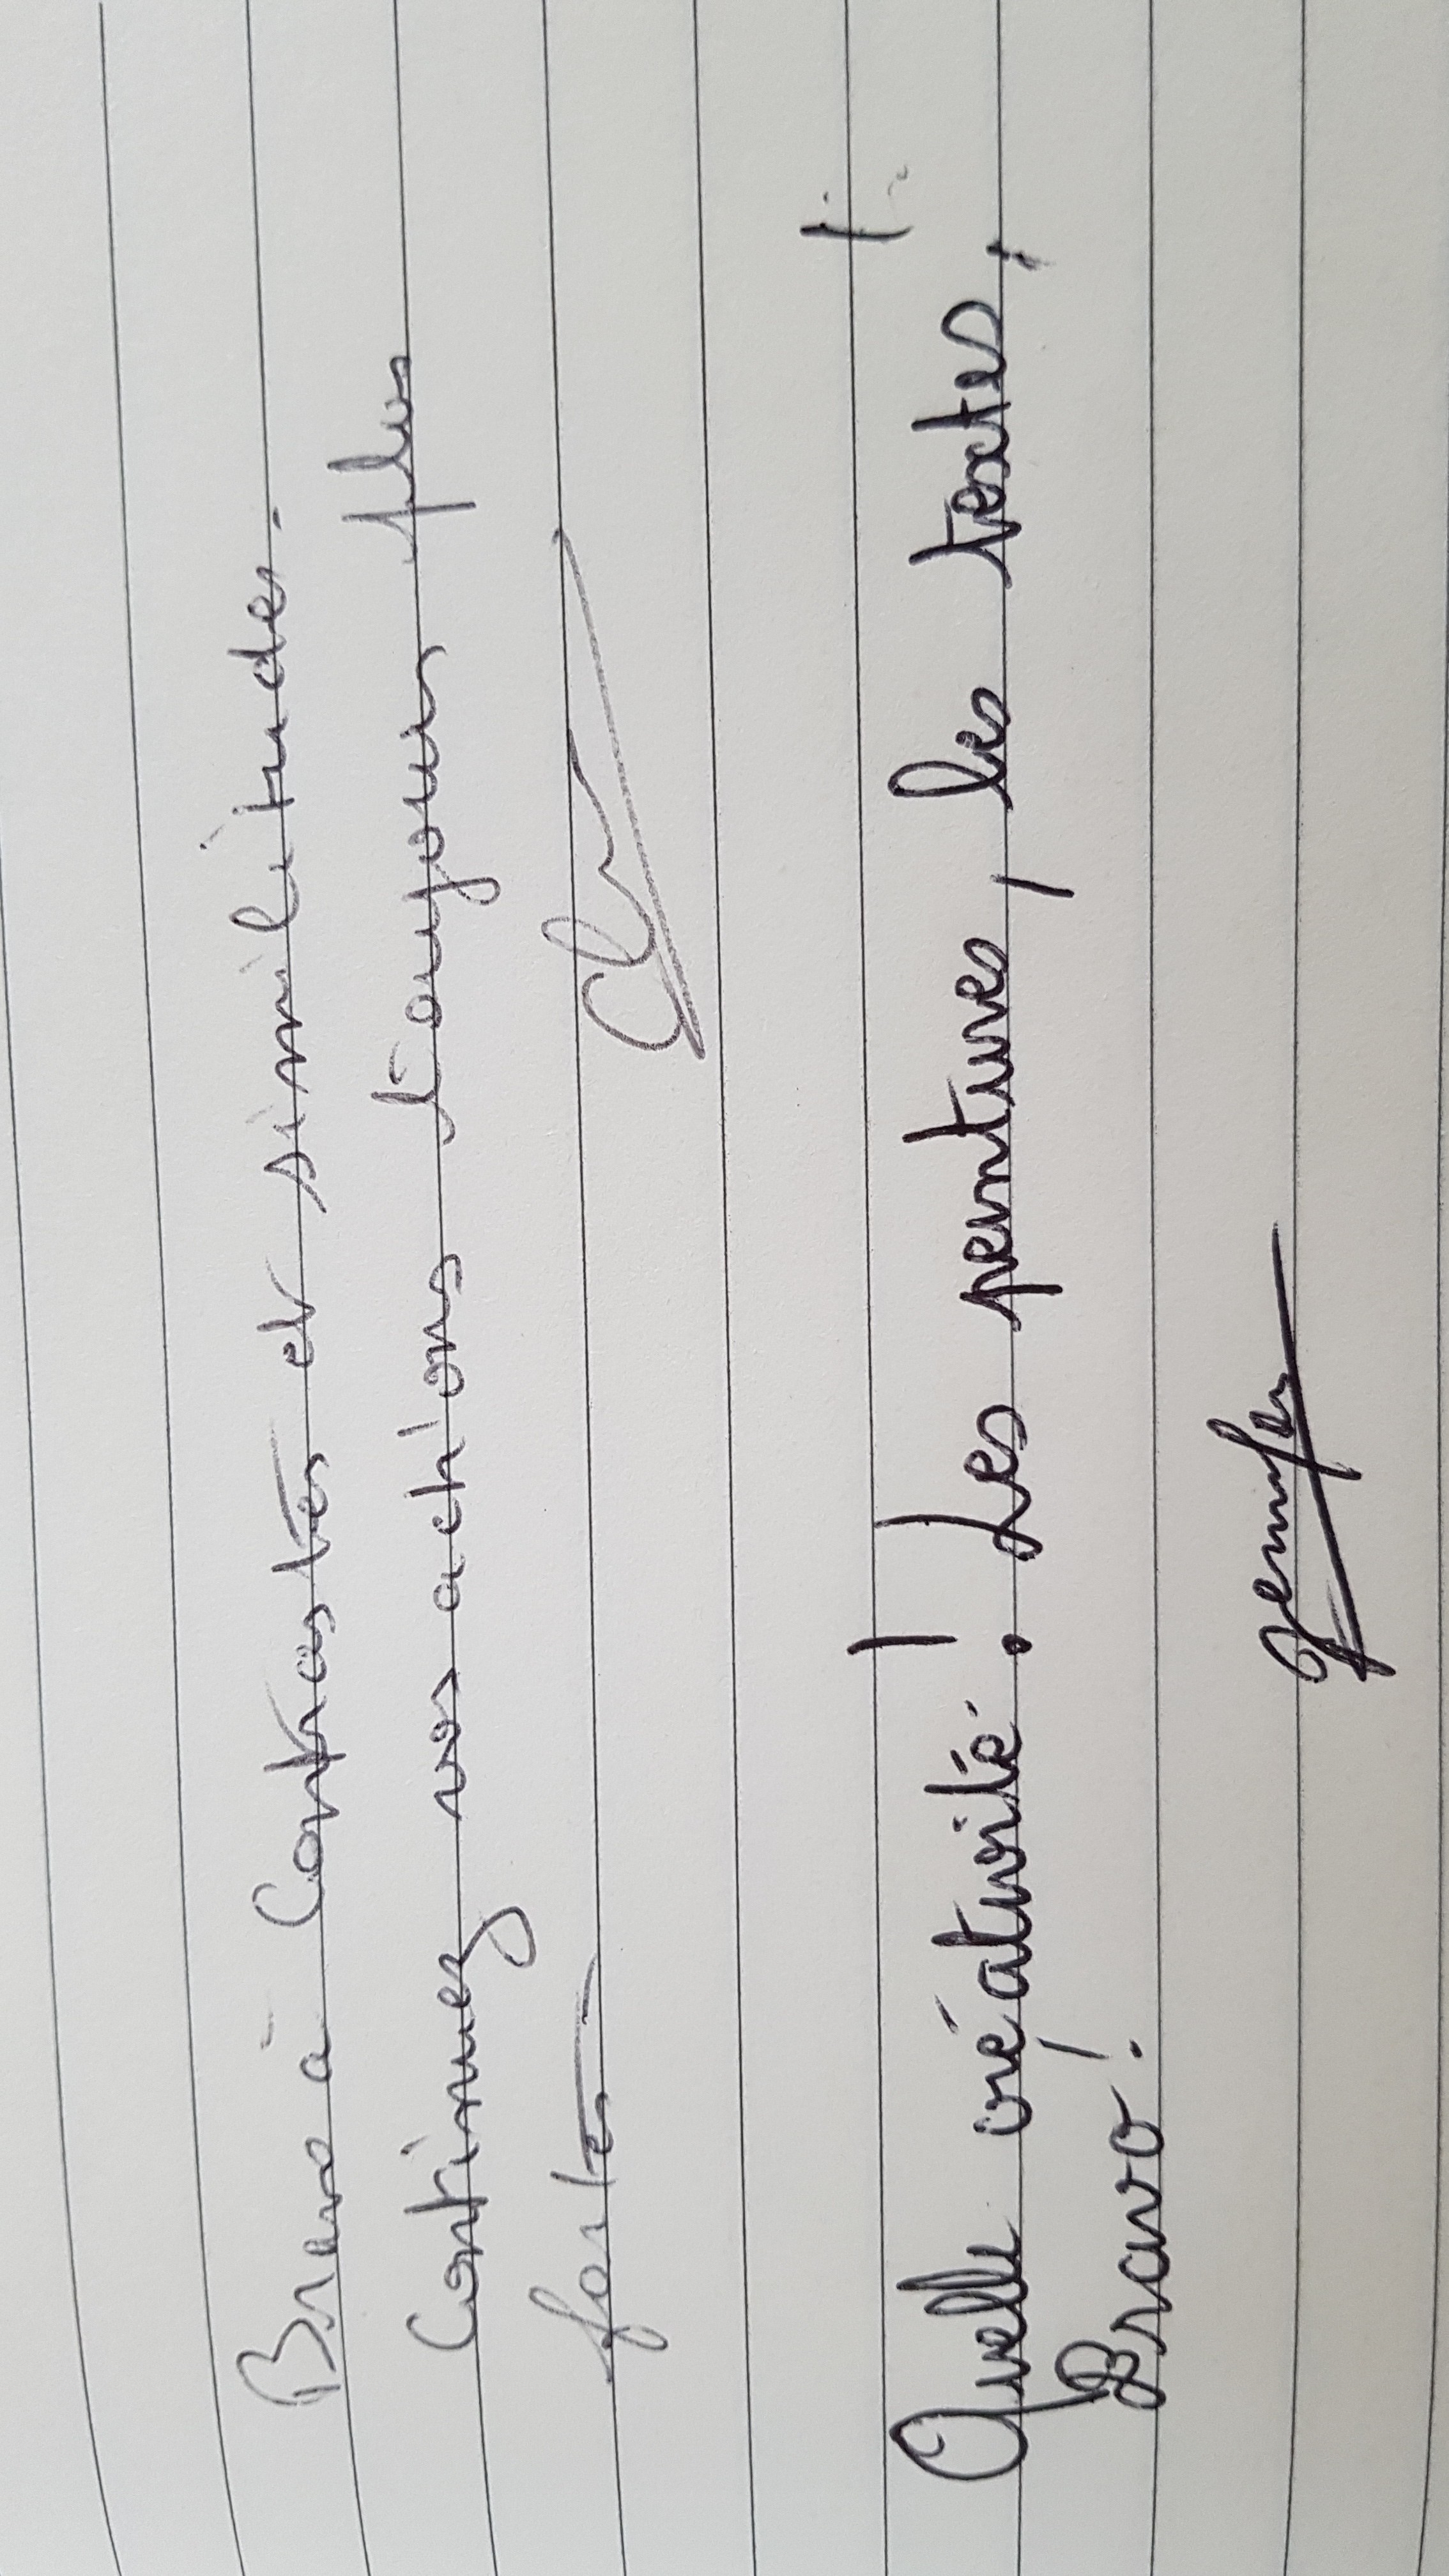 Bravo à Contrastes et similitudes.
Continuez vos actions toujours plus
fortes
Quelle créativité ! Les peintures, les textes, !
Bravo !
Jennifer